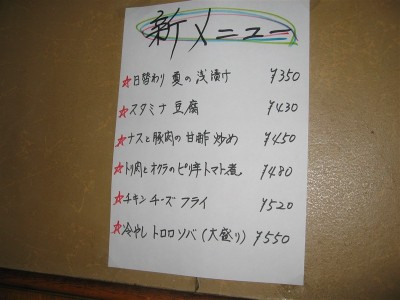 新メニュー
☆日替わり 夏の浅漬け ¥350
☆スタミナ豆腐 ¥430
☆ナスと豚肉の甘酢炒め ¥450
☆トリ肉とオクラのピリ辛トマト煮 ¥480
☆チキンチーズフライ ¥520
☆冷やしトロロソバ(大盛り) ¥550